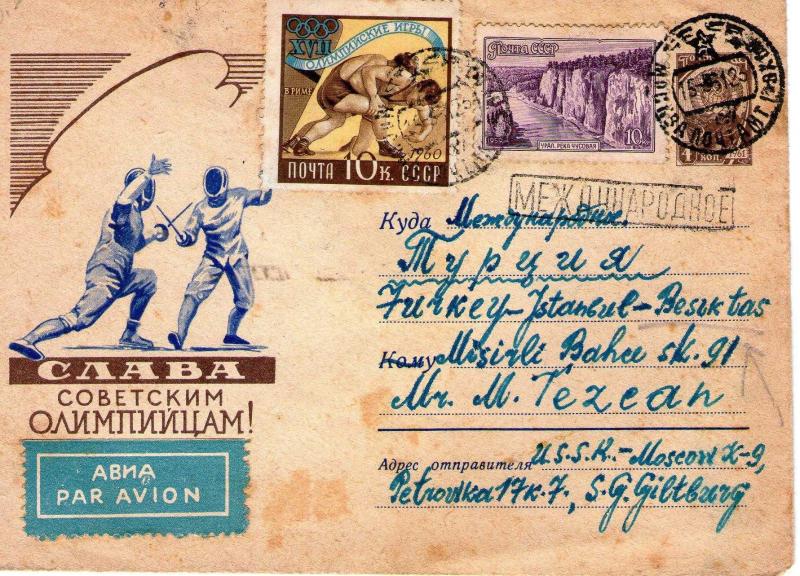 XVII
ОЛИМПИЙСКИЕ ИГРЫ
В РИМЕ
1960
ПОЧТА 10 К. СССР
ПОЧТА СССР
1959
10К
УРАЛ. РЕКА ЧУСОВАЯ
МОСКВА
ПОЧТАМТ
4 коп.
1961
МЕЖДУНАРОДНОЕ
Куда Международное.
Турция
Turkey-Istanbul-Besıktas
Кому Misirli Bahce sk. 91
Mr. M. Tezcan
Адрес отправителя U.S.S.R.-Moscow K-9,
Petrovka 17 к.7., S.G.Giltburg
СЛАВА
СОВЕТСКИМ
ОЛИМПИЙЦАМ!
АВИА
PAR AVION